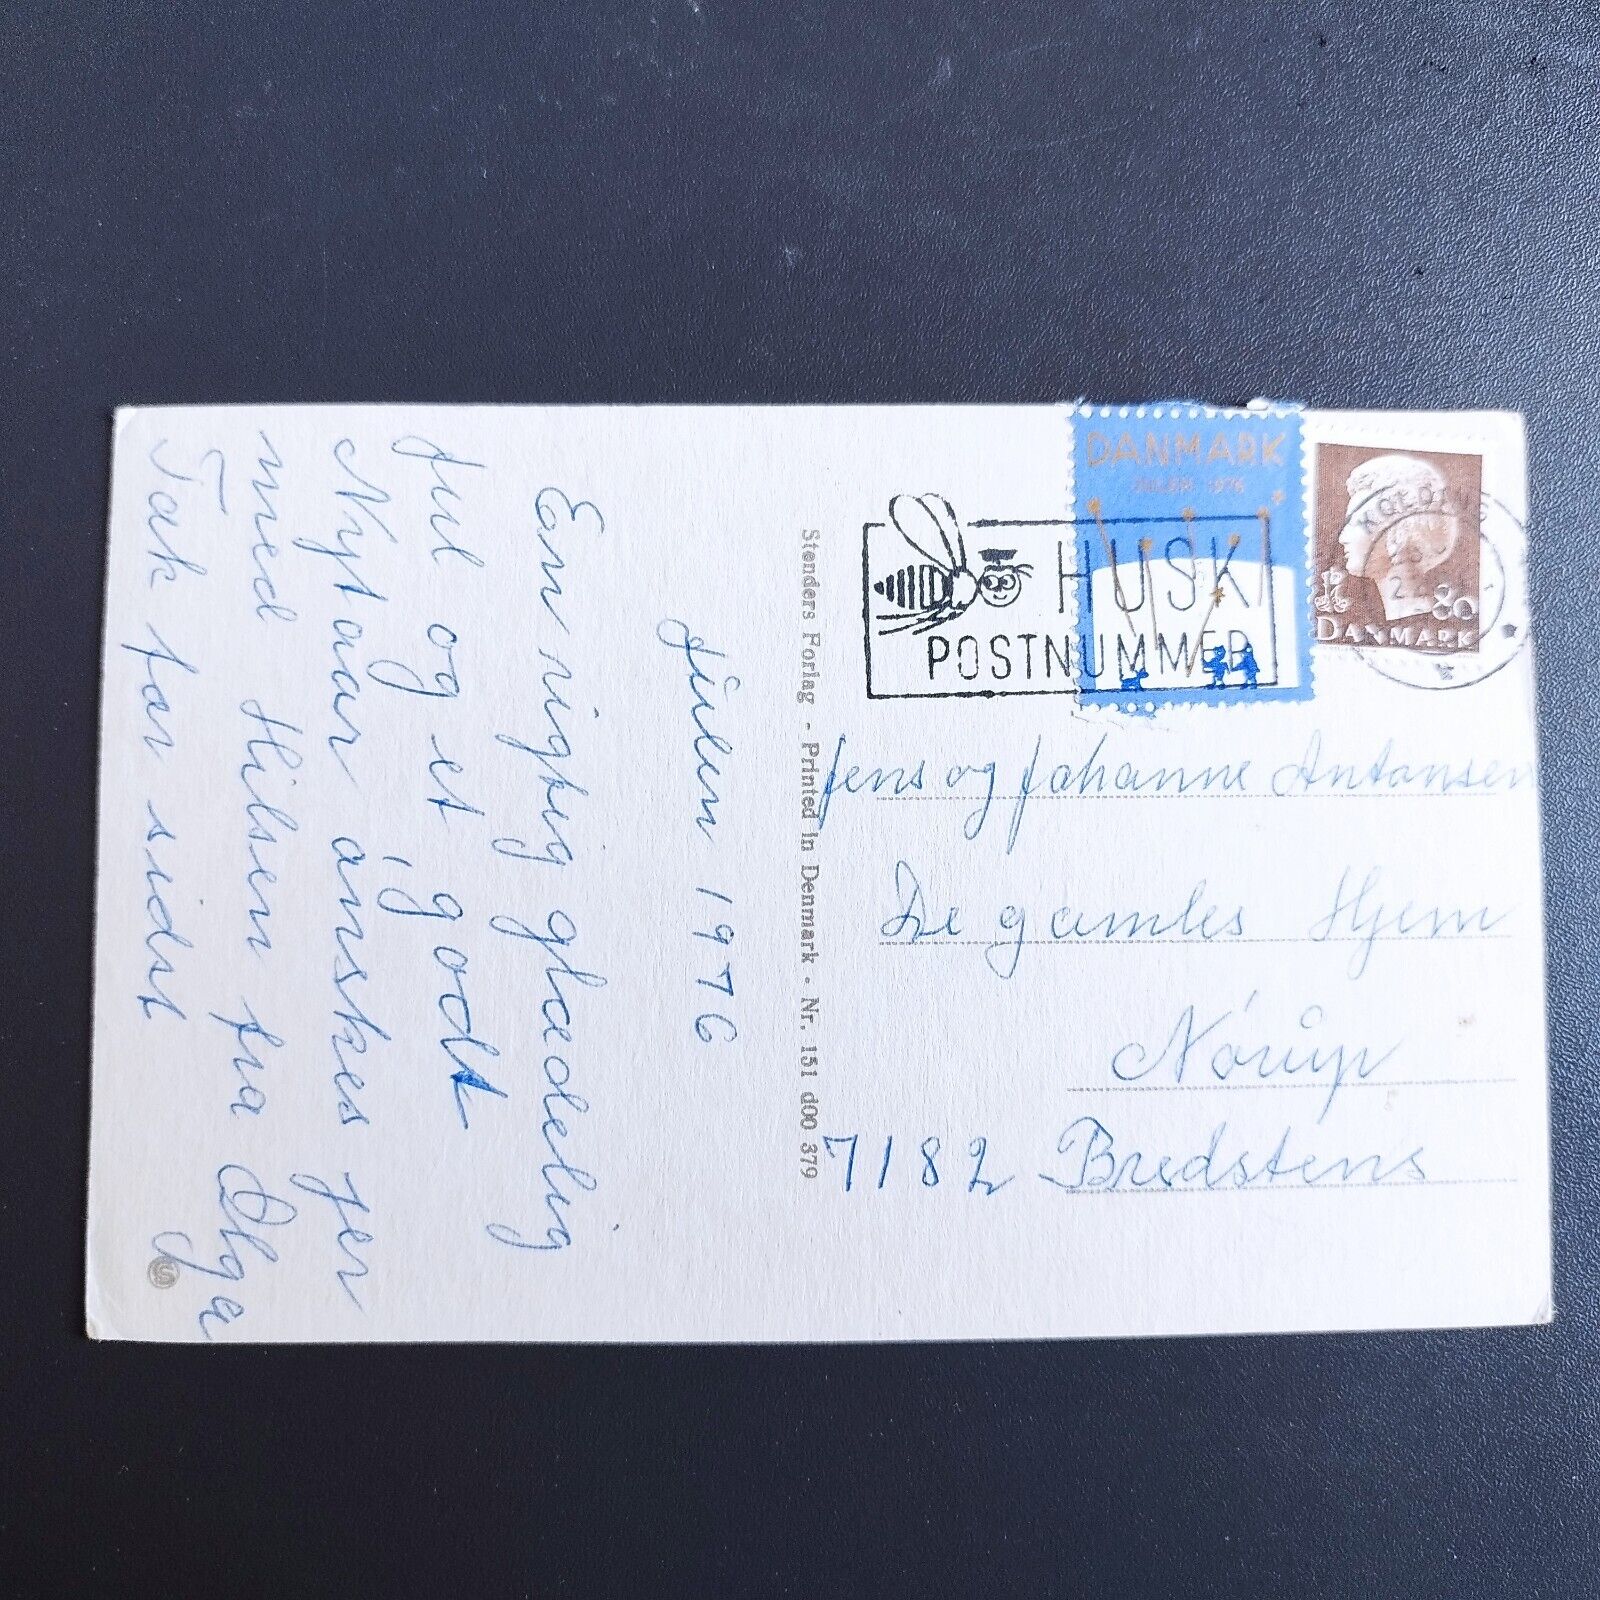 Julen 1976
En rigtig glædelig
Jul og et godt
Nytaar ønskes jer
med Hilsen fra Olga
Tak for sidst
Stenders Forlag - Printed in Denmark - Nr. 151 d00 379
DANMARK
JULEN 1976
HUSK
POSTNUMMER
KOLDING
80
DANMARK
Jens og Johanne Antonsen
De gamles Hjem
Nørup
7182 Bredstens